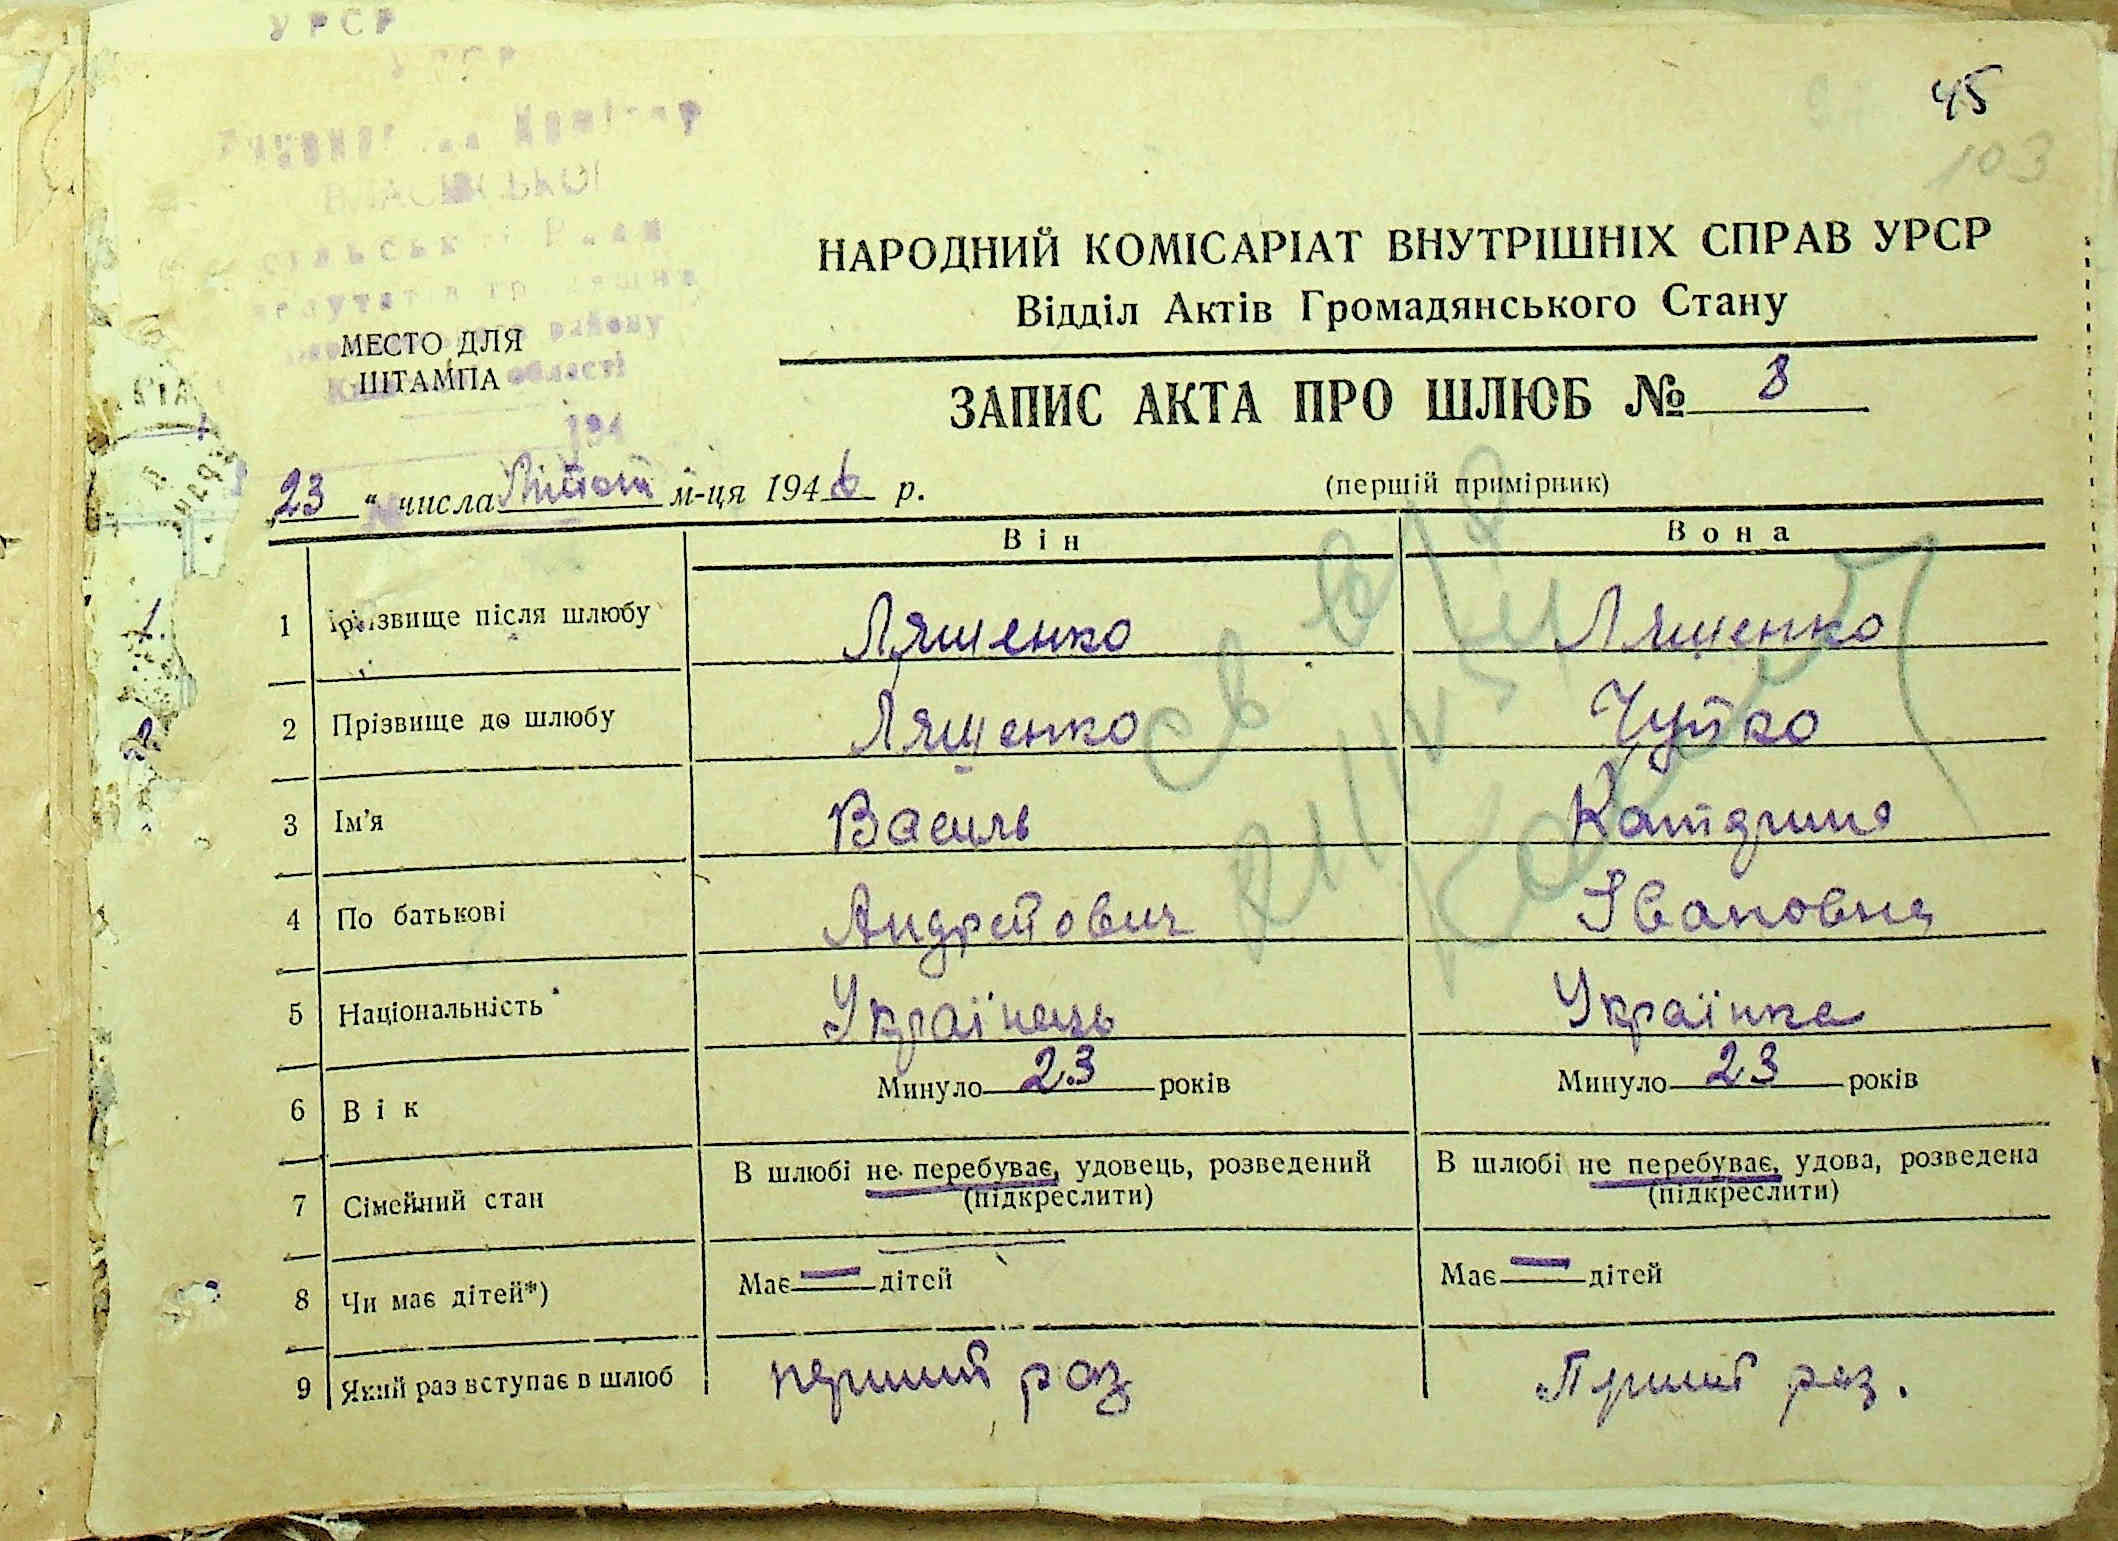 УРСР
УРСР
45
103
сільської Ради
району
області
194
МЕСТО ДЛЯ
ШТАМПА
НАРОДНИЙ КОМІСАРІАТ ВНУТРІШНІХ СПРАВ УРСР
Відділ Актів Громадянського Стану
ЗАПИС АКТА ПРО ШЛЮБ № 8
23 " числа Лютого м-ця 1946 р.
(першій примірник)
Він Вона
1 Прізвище після шлюбу Лященко Лященко
2 Прізвище до шлюбу Лященко Чуйко
3 Ім'я Василь Катдрина
4 По батькові Андрейович Івановна
5 Національність Українець Українка
6 Вік Минуло 23 років Минуло 23 років
7 Сімейний стан В шлюбі не перебуває, удовець, розведений В шлюбі не перебуває, удова, розведена
(підкреслити) (підкреслити)
8 Чи має дітей*) Має — дітей Має — дітей
9 Який раз вступає в шлюб перший раз Перший раз.